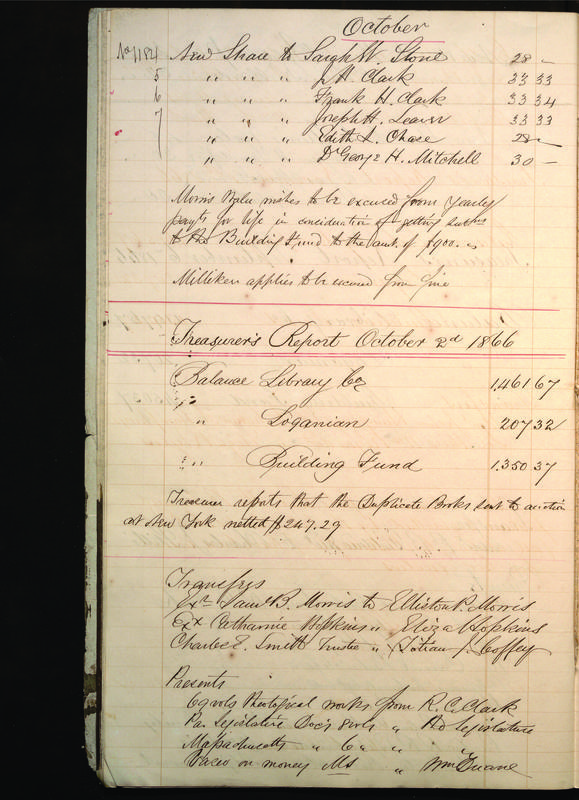 October
No 1184 New Share to Sarah W. Stone 28 –
5 " " " J. H. Clark 33 33
6 " " " Frank H. Clark 33 34
7 " " " Joseph H. 33 33
" " " Edith L. Chase 28 –
" " " Dr George H. Mitchell 30 –
Morris wishes to be excused from yearly
payts for life in consideration of getting
to the Building Fund to the amt. of $900.
Milliken applies to be excused from fine
Treasurer's Report October 2d 1866
Balance Library Co 1,461 67
" Loganian 207 32
" " Building Fund 1,350 37
Treasurer reports that the Duplicate Books sent to auction
at New York netted $247.29
Transfers
Exr Saml B. Morris to Elliston P. Morris
Exx Catharine Hopkins " Eliza Hopkins
Charles E. Smith Trustee " Titian J. Coffey
Presents
69 vols theological works from R. C. Clark
Pa. Legislative Doc's 8 vols " the legislature
Massachusetts " 6 " " "
on money Ms " Wm Duane